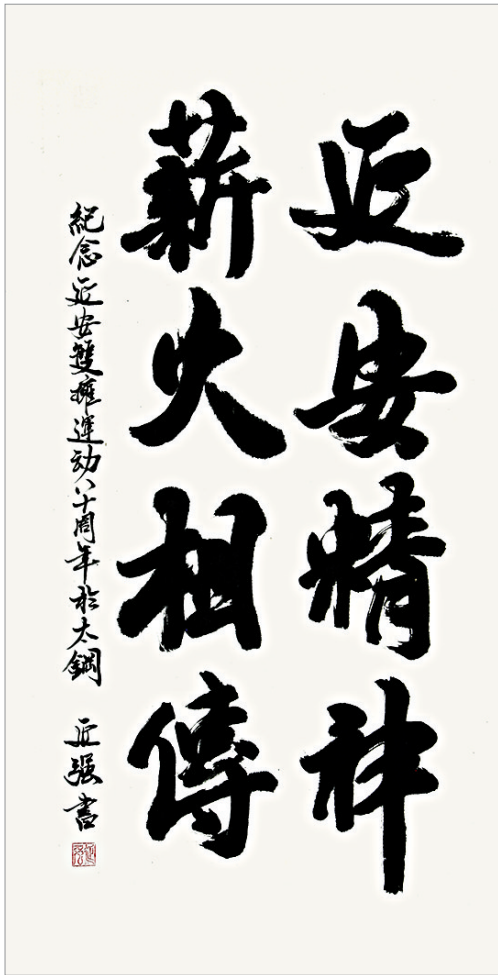 延安精神
薪火相傳
紀念延安雙擁運动八十周年於太鋼 延强書